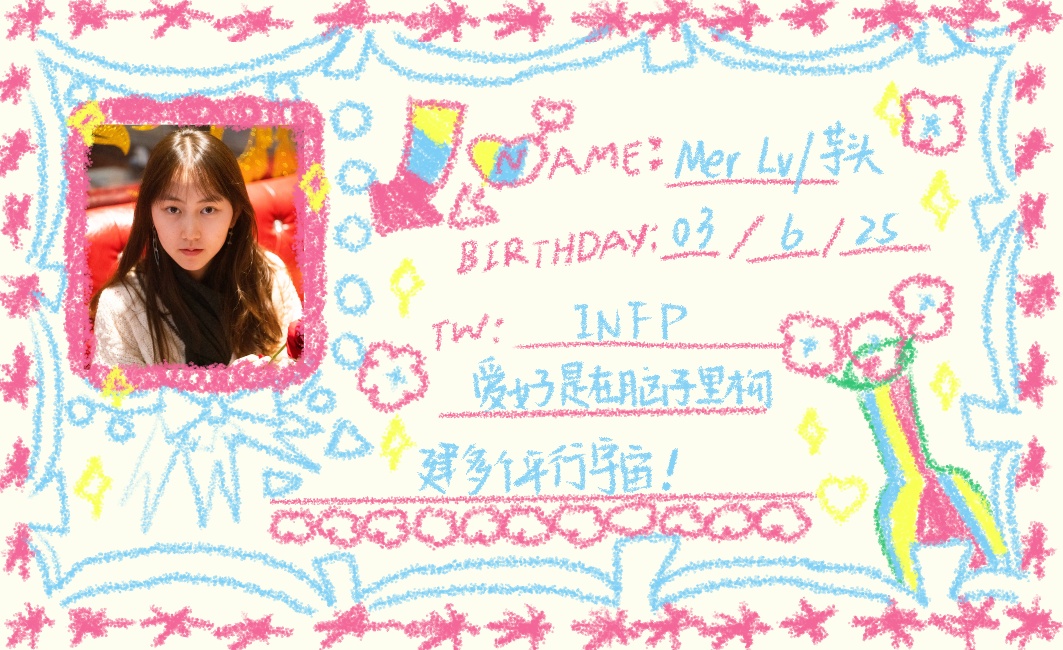 NAME: Mer Lv/芋头
BIRTHDAY: 03/6/25
TW: INFP
爱好是在脑子里构
建多个平行宇宙!